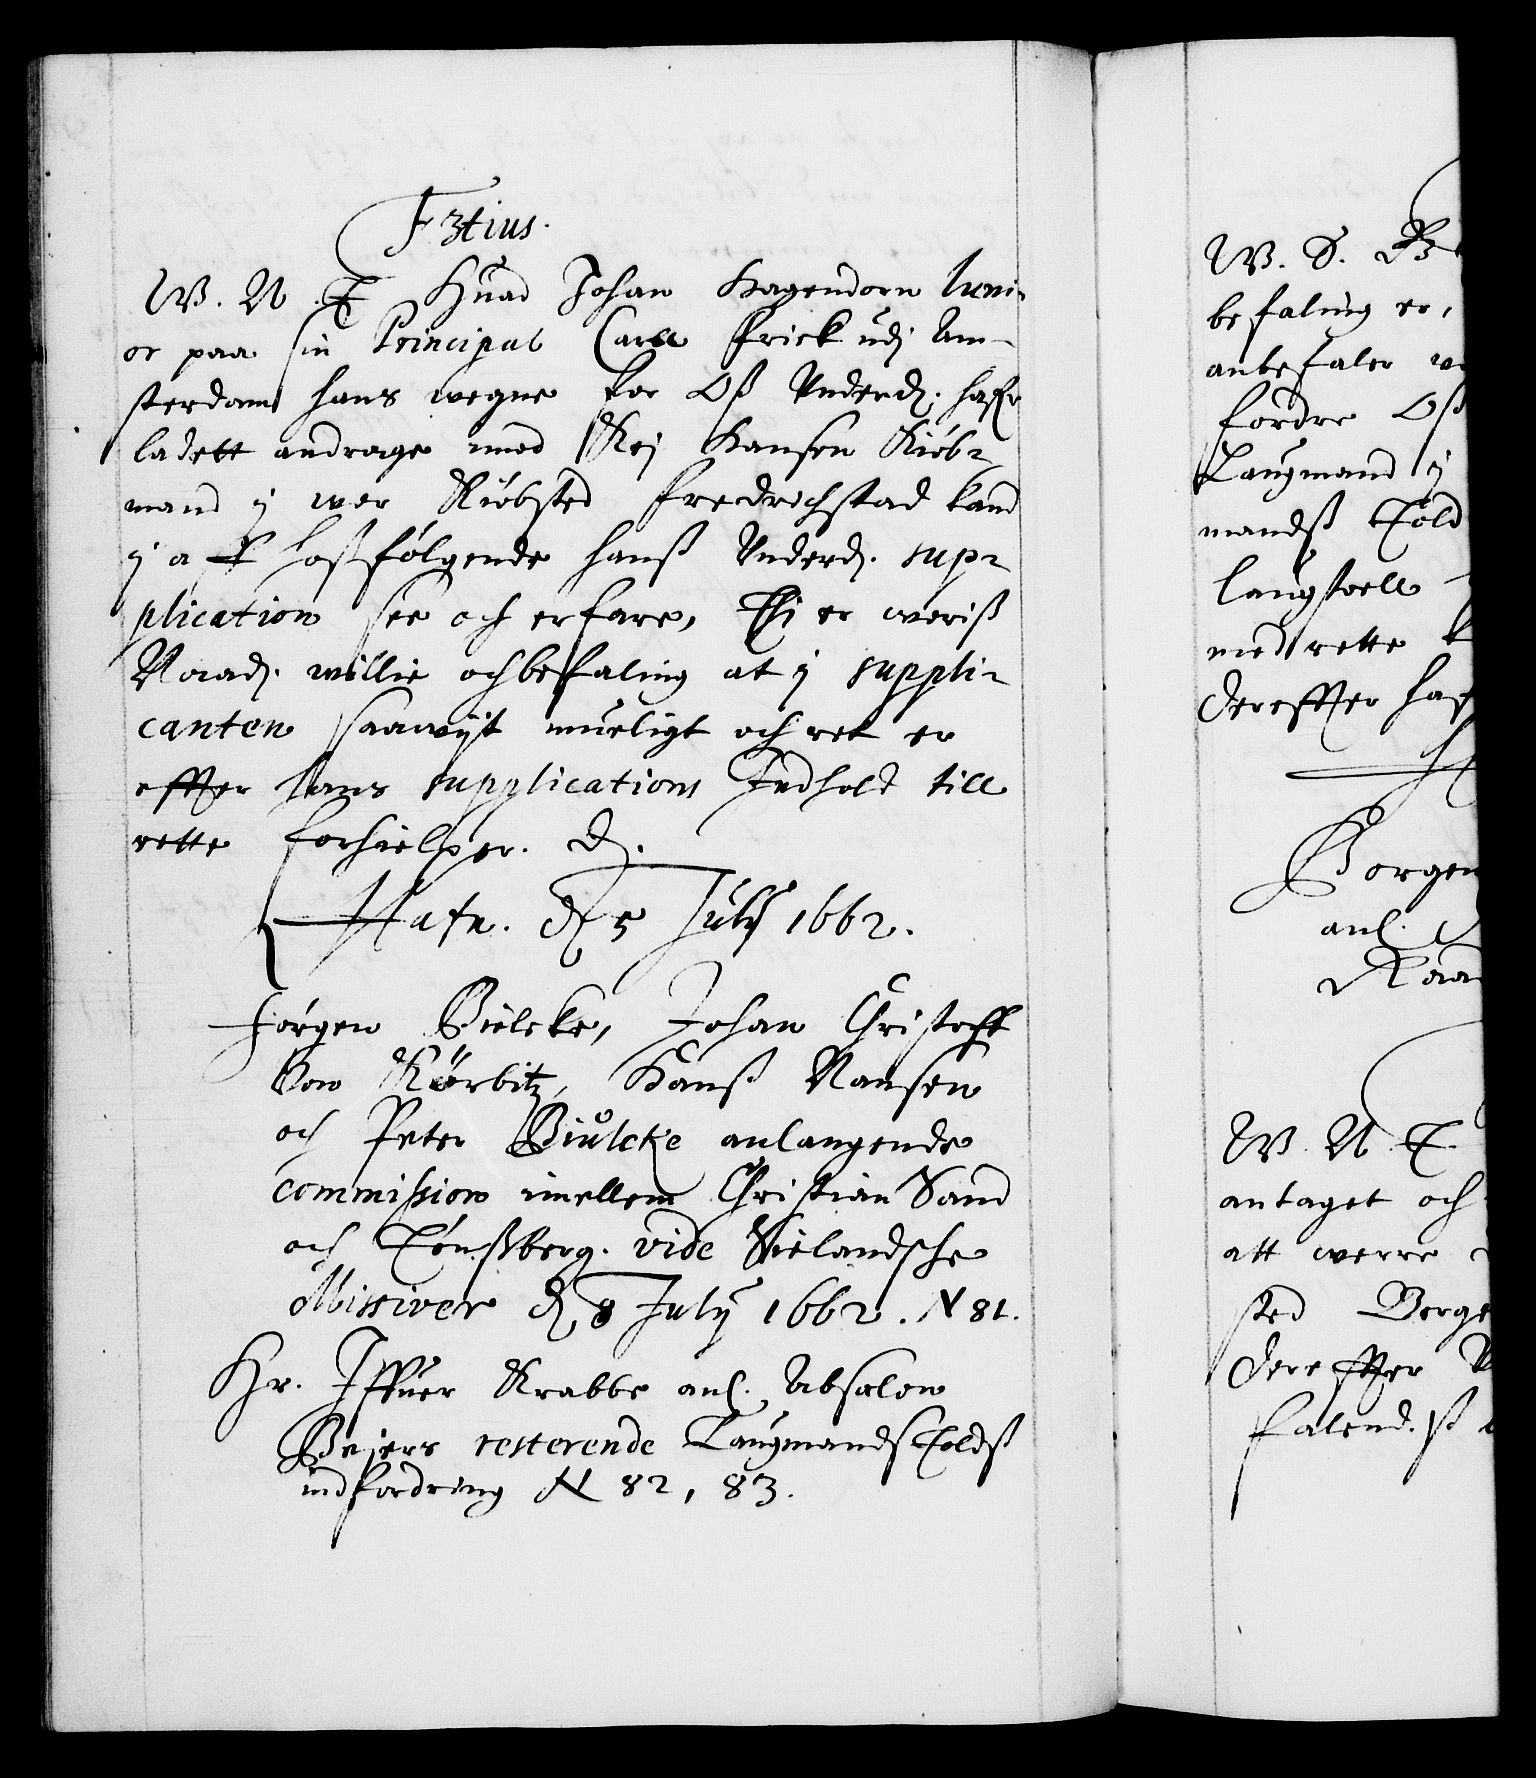 F 3tius.
W. N. T. Huad Johan Hagendorn Iuni-
or paa sin Principal Carll Frick udj Am-
sterdam hans wegne for Oß Underd. hafr
ladett andrage mod Rej Hansen Kiöb-
mand y wor Kiöbsted Fredrichstad kand
y af hosfölgende hanß Underd. sup-
plication see och erfare, Thi er woriß
Naad. willie och befaling at y suppli-
canten saawijt mueligt och ret er
effter hans supplications Indhold till
rette forhielper. D.
Hafn. d. 5 July 1662.
Jörgen Bielcke, Johan Christoff
von Körbitz, Hanß Nansen
och Peter Biülcke anlangende
commission imellem Christian Sand
och Tönßberg. vide Sielandsche
Missiver d. 8 July 1662. N 81.
Hr. Iffuer Krabbe anl. Absolon
Bejers resterende Laugmands Toldß
indfordring N 82, 83.
W. S. B
befaling er,
anbefaler
fordre Oß
Laugmand y
mandß Told
laugstoell
med rette
dereffter haf
H
Börgen
anl.
Raad
W. N. T.
antaget och
att werre
sted Berge
dereffter
falend. ß